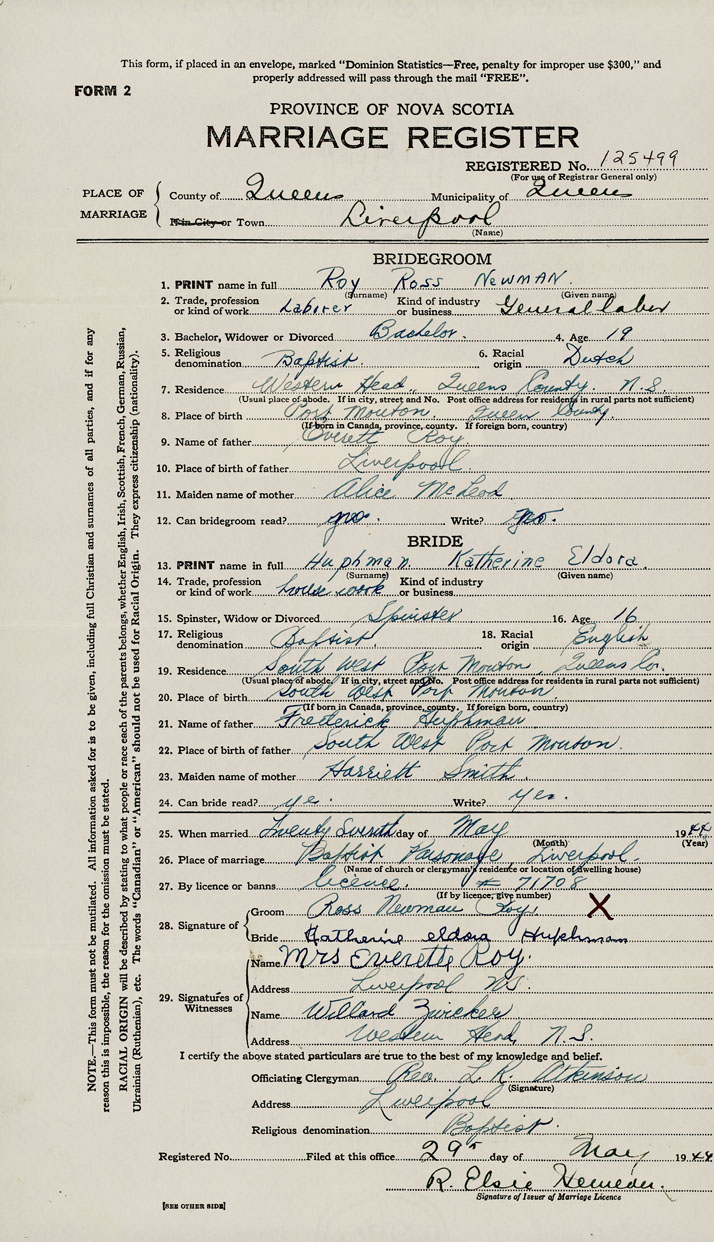 This form, if placed in an envelope, marked “Dominion Statistics—Free, penalty for improper use $300,” and
properly addressed will pass through the mail “FREE”.
FORM 2
PROVINCE OF NOVA SCOTIA
MARRIAGE REGISTER
REGISTERED No. 125499
(For use of Registrar General only)
PLACE OF MARRIAGE
County of Queens Municipality of Queens
In City or Town Liverpool
(Name)
BRIDEGROOM
1. PRINT name in full Roy Ross Newman.
(Surname) (Given name)
2. Trade, profession or kind of work Laborer Kind of industry or business General labor
3. Bachelor, Widower or Divorced Bachelor. 4. Age 19
5. Religious denomination Baptist. 6. Racial origin Dutch
7. Residence Western Head, Queens County. N.S.
(Usual place of abode. If in city, street and No. Post office address for residents in rural parts not sufficient)
8. Place of birth Port Mouton, Queens County.
(If born in Canada, province, county. If foreign born, country)
9. Name of father Everett Roy.
10. Place of birth of father Liverpool.
11. Maiden name of mother Alice McLeod
12. Can bridegroom read? no. Write? no.
BRIDE
13. PRINT name in full Huphman. Katherine Eldora
(Surname) (Given name)
14. Trade, profession or kind of work house work Kind of industry or business
15. Spinster, Widow or Divorced Spinster 16. Age 16
17. Religious denomination Baptist. 18. Racial origin English
19. Residence South West Port Mouton, Queens Co.
(Usual place of abode. If in city, street and No. Post office address for residents in rural parts not sufficient)
20. Place of birth South West Port Mouton
(If born in Canada, province, county. If foreign born, country)
21. Name of father Frederick Huphman
22. Place of birth of father South West Port Mouton.
23. Maiden name of mother Harriett Smith.
24. Can bride read? yes. Write? yes.
25. When married Twenty day of May 1944
(Month) (Year)
26. Place of marriage Baptist Parsonage Liverpool.
(Name of church or clergyman's residence or location of dwelling house)
27. By licence or banns licence. # 71708
(If by licence, give number)
28. Signature of
Groom Ross Newman Roy. X
Bride Katherine eldora Huphmam
29. Signatures of Witnesses
Name Mrs Everette Roy.
Address Liverpool NS.
Name Willard Zwicker
Address Western Head, N.S.
I certify the above stated particulars are true to the best of my knowledge and belief.
Officiating Clergyman Rev. L. K. Atkinson
(Signature)
Address Liverpool
Religious denomination Baptist.
Registered No. Filed at this office 29 day of May 1944
R. Elsie
Signature of Issuer of Marriage Licence
[SEE OTHER SIDE]
NOTE.—This form must not be mutilated. All information asked for is to be given, including full Christian and surnames of all parties, and if for any
reason this is impossible, the reason for the omission must be stated.
RACIAL ORIGIN will be described by stating to what people or race each of the parents belongs, whether English, Irish, Scottish, French, German, Russian,
Ukrainian (Ruthenian), etc. The words “Canadian” or “American” should not be used for Racial Origin. They express citizenship (nationality).